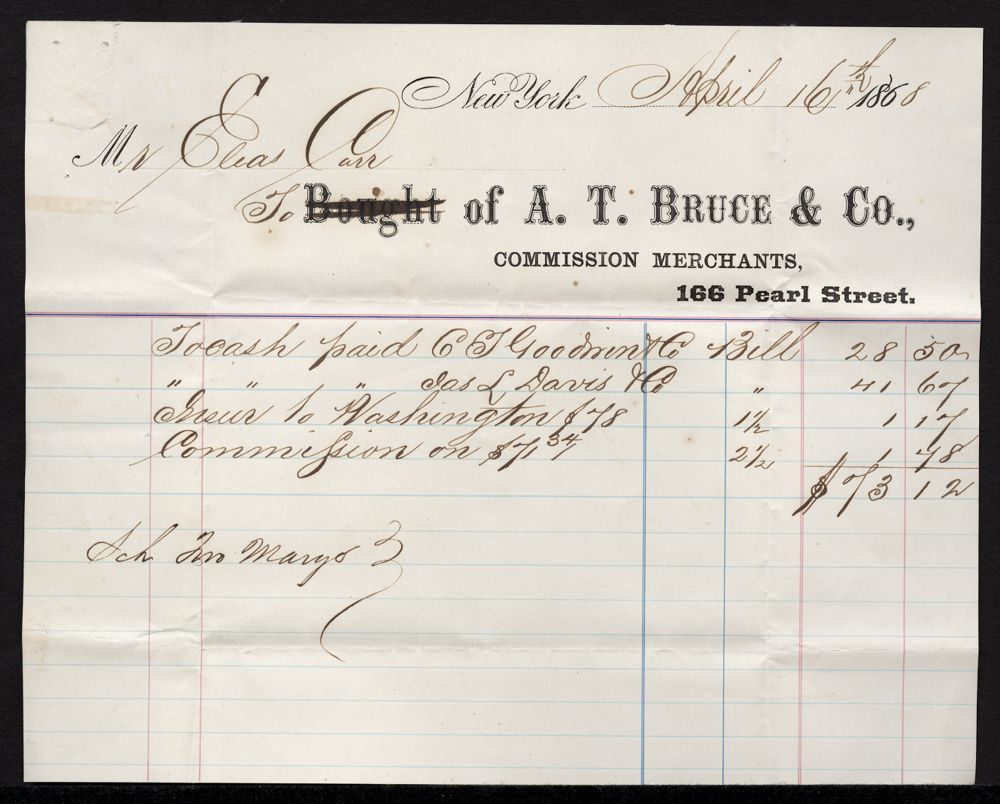 New York April 16th 1868
Mr Elias Carr
To Bought of A. T. BRUCE & Co.,
COMMISSION MERCHANTS,
166 Pearl Street.
To cash paid C T Goodwin & Co Bill 28 50
" " " Jas L Davis & Co " 41 67
Insur to Washington $78 1½ 1 17
Commission on $71 34 2½ 1 78
$73 12
Sch Mary